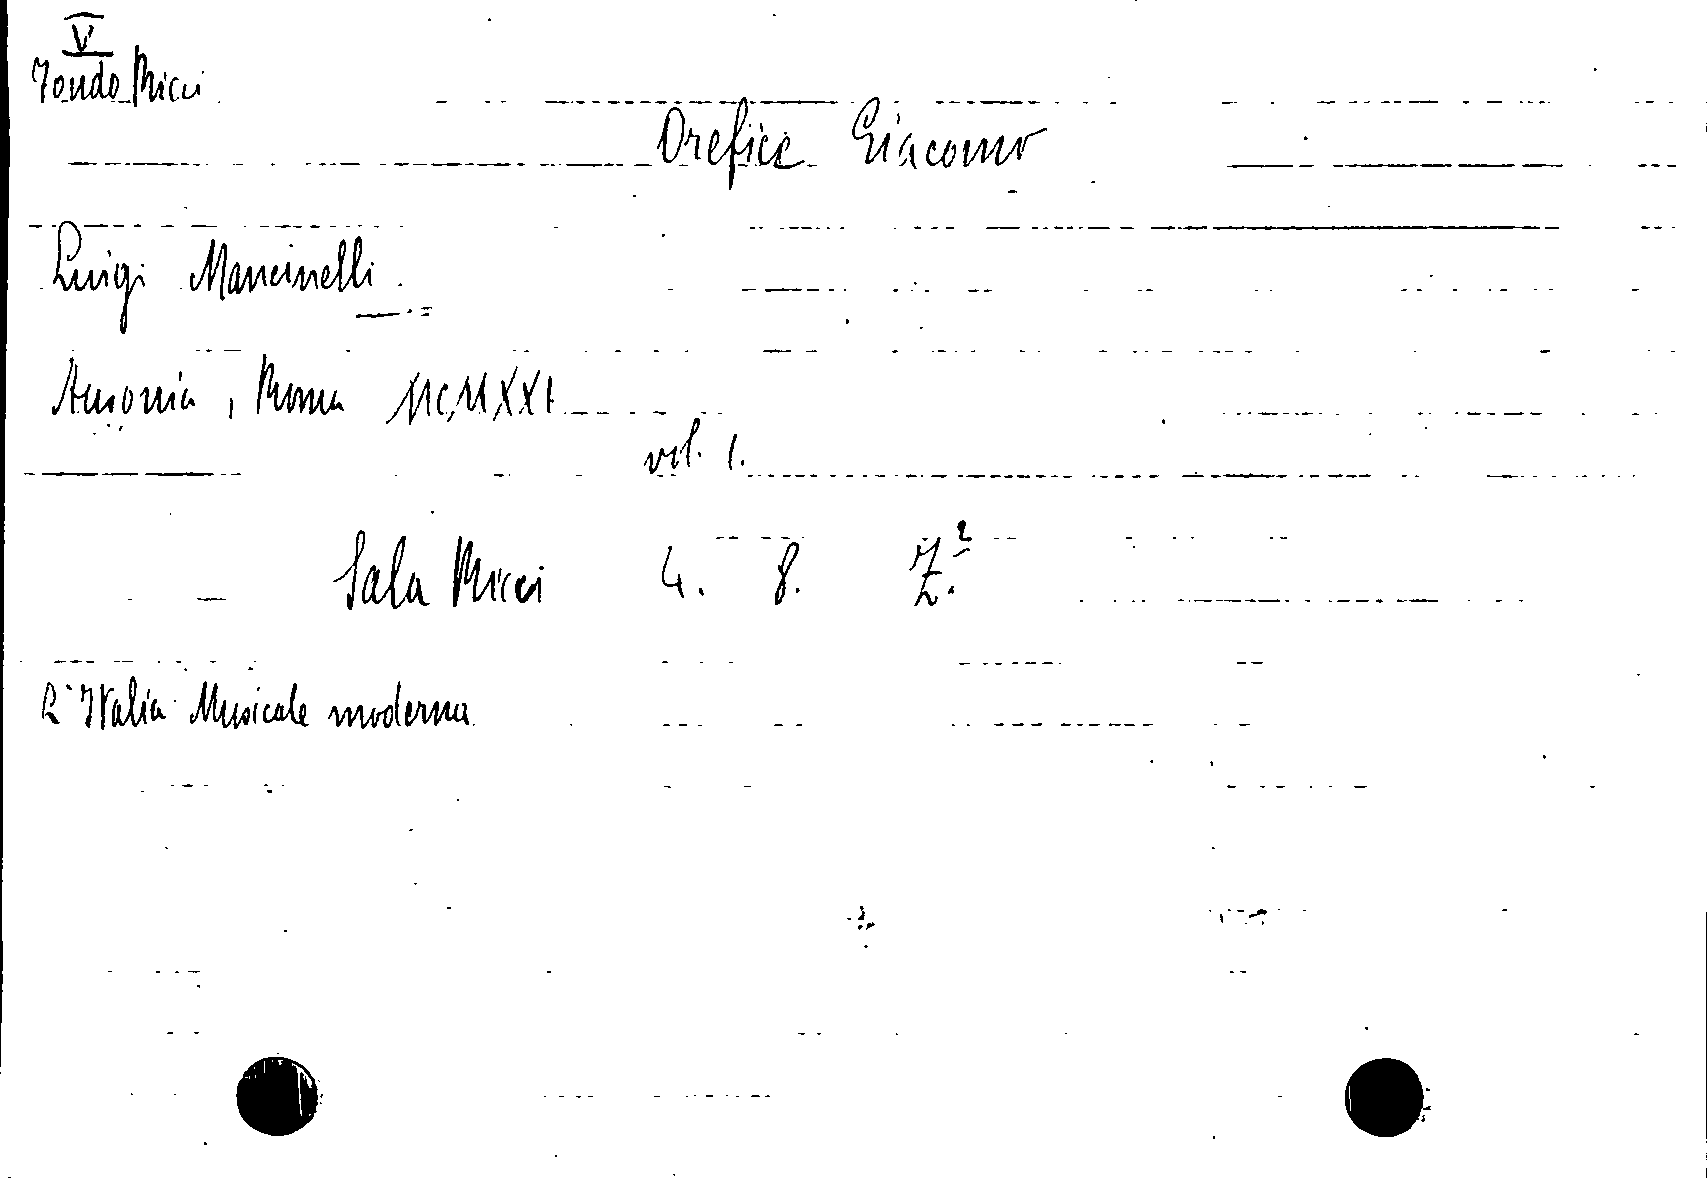 V
Fondo Ricci
Orefice Giacomo
Luigi Mancinelli.
Ausonia, Roma MCMXXI
vol. 1.
Sala Ricci 4. 8. Z.²
L'Italia Musicale moderna